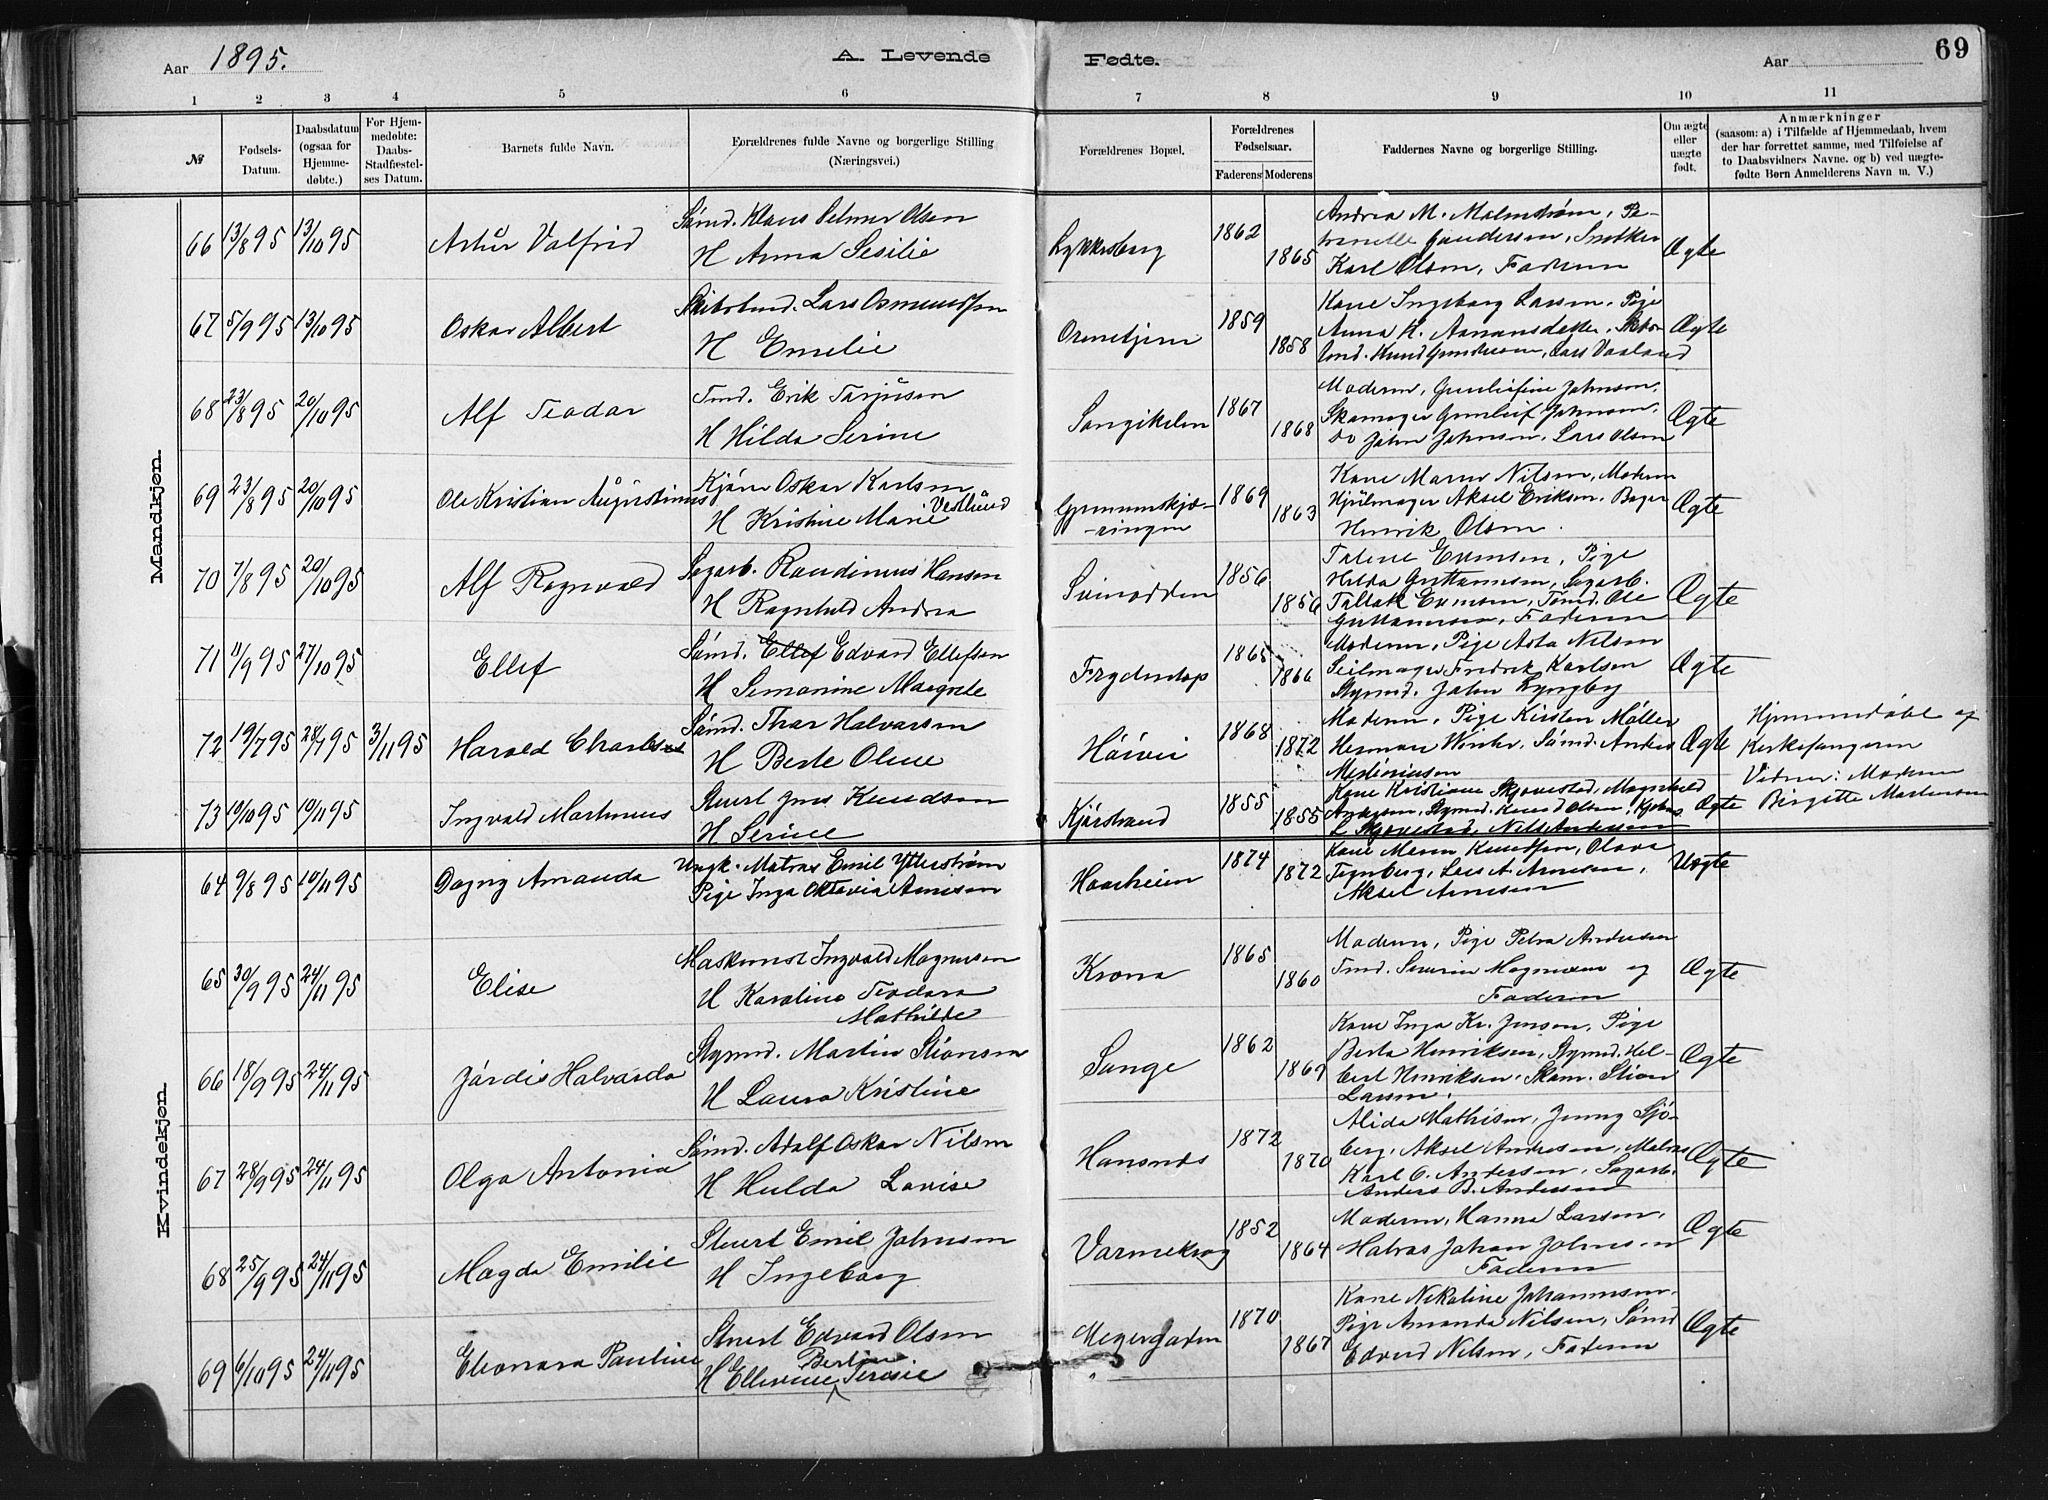 Aar 1895.
A. Levende Fødte.
Aar
69
1 2 3 4 5 6 7 8 9 10 11
№
Fødsels-Datum.
Daabsdatum (ogsaa for Hjemme-døbte.)
For Hjem-medøbte: Daabs-Stadfæstel-ses Datum.
Barnets fulde Navn.
Forældrenes fulde Navne og borgerlige Stilling (Næringsvei.)
Forældrenes Bopæl.
Forældrenes Fødselsaar.
Faderens Moderens
Faddernes Navne og borgerlige Stilling.
Om ægte eller uægte født.
Anmærkninger
(saasom: a) i Tilfælde af Hjemmedaab, hvem der har forrettet samme, med Tilføielse af to Daabsvidners Navne. og b) ved uægte-fødte Børn Anmelderens Navn m. V.)
Mandkjøn.
66 13/8 95 13/10 95 Artur Valfrid Sømd. Klaus Selmer Olsen
H Anna Sesilie
Lykkesberg 1862 1865
Andrea M. Malmstrøm, Pe-
tranelle Gundersen, Snekker
Karl Olsen, Faderen
Ægte
67 5/9 95 13/10 95 Oskar Albert Skibstmd. Lars Osmundsen
H Emelie
Ormetjern 1859 1858
Kone Ingeborg Larsen, Pige
Anna H. Aanansdatter, Skibst
tmd. Knud Gundersen, Lars Vaaland
Ægte
68 23/8 95 20/10 95 Alf Teodor Tmd. Erik Terjusen
H Hilda Serine
Songikelen 1867 1868
Moderen, Gunliefine Johnsen,
Skomager Gunleif Johnsen,
do John Johnsen, Lars Olsen
Ægte
69 23/8 95 20/10 95 Ole Kristian Augustinus Kjørm Oskar Karlsen
Vestlund
H Kristine Marie
Grummskjæ-
-ringen 1869 1863
Kone Maren Nilsen, Moderen
Hjulmager Aksel Eriksen, Bager
Henrik Olsen.
Ægte
70 7/8 95 20/10 95 Alf Ragnvald Sagarb. Raudinius Hansen
H Ragnhild Andrea
Svinodden 1856 1856
Talene Evensen, Pige
Hilda Guttormsen, Sagarb.
Tallak Evensen, Sømd. Ole
Guttormsen, Faderen
Ægte
71 11/9 95 27/10 95 Ellef Sømd. Ellef Edvard Ellefsen
H Simonine Margrete
Frydendop 1865 1866
Moderen, Pige Asta Nilsen
Seilmager Fredrik Karlsen
Styrmd. John Lyngby
Ægte
72 19/7 95 28/7 95 3/11 95 Harald Charles Sømd. Thor Halvorsen
H Berte Oline
Høivei 1868 1872
Moderen, Pige Kirsten Møller
Herman Winter, Sømd. Anders
Mertiniusen
Ægte
Hjemmedøbt af
Kirkesangeren
Vidner: Moderen
Birgitte Mortensen
73 10/10 95 10/11 95 Ingvald Martinius Stuert Jens Knudsen
H Serine
Kjørstrand 1855 1855
Kone Kristiane Skjovestad, Magnhild
Andersen, Styrmd. Knud Olsen, Kjøbm.
L Skjovestad, Nils Andersen
Ægte
Kvindekjøn.
64 9/8 95 10/11 95 Dagny Amanda Ungk. Matros Emil Ytterstrøm
Pige Inga Oktavia Arnesen
Haaheien 1874 1872
Kone Maren Knudsen, Olava
Tignberg, Lars A. Arnesen,
Aksel Arnesen
Uægte
65 30/9 95 24/11 95 Elise Maskinist Ingvald Magnusen
H Karoline Teodora
Mathilde
Krona 1865 1860
Moderen, Pige Petra Andersen
Tmd. Severin Magnusen og
Faderen
Ægte
66 18/9 95 24/11 95 Jårdis Halvarda Styrmd. Martin Stiansen
H Laura Kristine
Songe 1862 1869
Kone Inga Kr. Jensen, Pige
Berta Henriksen, Styrmd. Hel-
bert Henriksen, Skom. Stian
Larsen.
Ægte
67 28/9 95 24/11 95 Olga Antonia Sømd. Adolf Oskar Nilsen
H Hulda Lovise
Hansnæs 1872 1870
Alida Mathisen, Jenny Sjø-
berg, Aksel Andresen, Matros
Karl O. Andersen, Sagarb.
Anders B. Andersen
Ægte
68 25/9 95 24/11 95 Magda Emilie Stuert Emil Johnsen
H Ingeborg
Varmekrog 1852 1864
Moderen, Hanna Larsen,
Matros Johan Johnsen
Faderen
Ægte
69 6/10 95 24/11 95 Eleonora Pauline Stuert Edvard Olsen
Bertine
H Ellevine Teresie
Meyergaden 1870 1867
Kone Nikoline Johannesen,
Pige Amanda Nilsen, Sømd
Edvard Nilsen, Faderen
Ægte